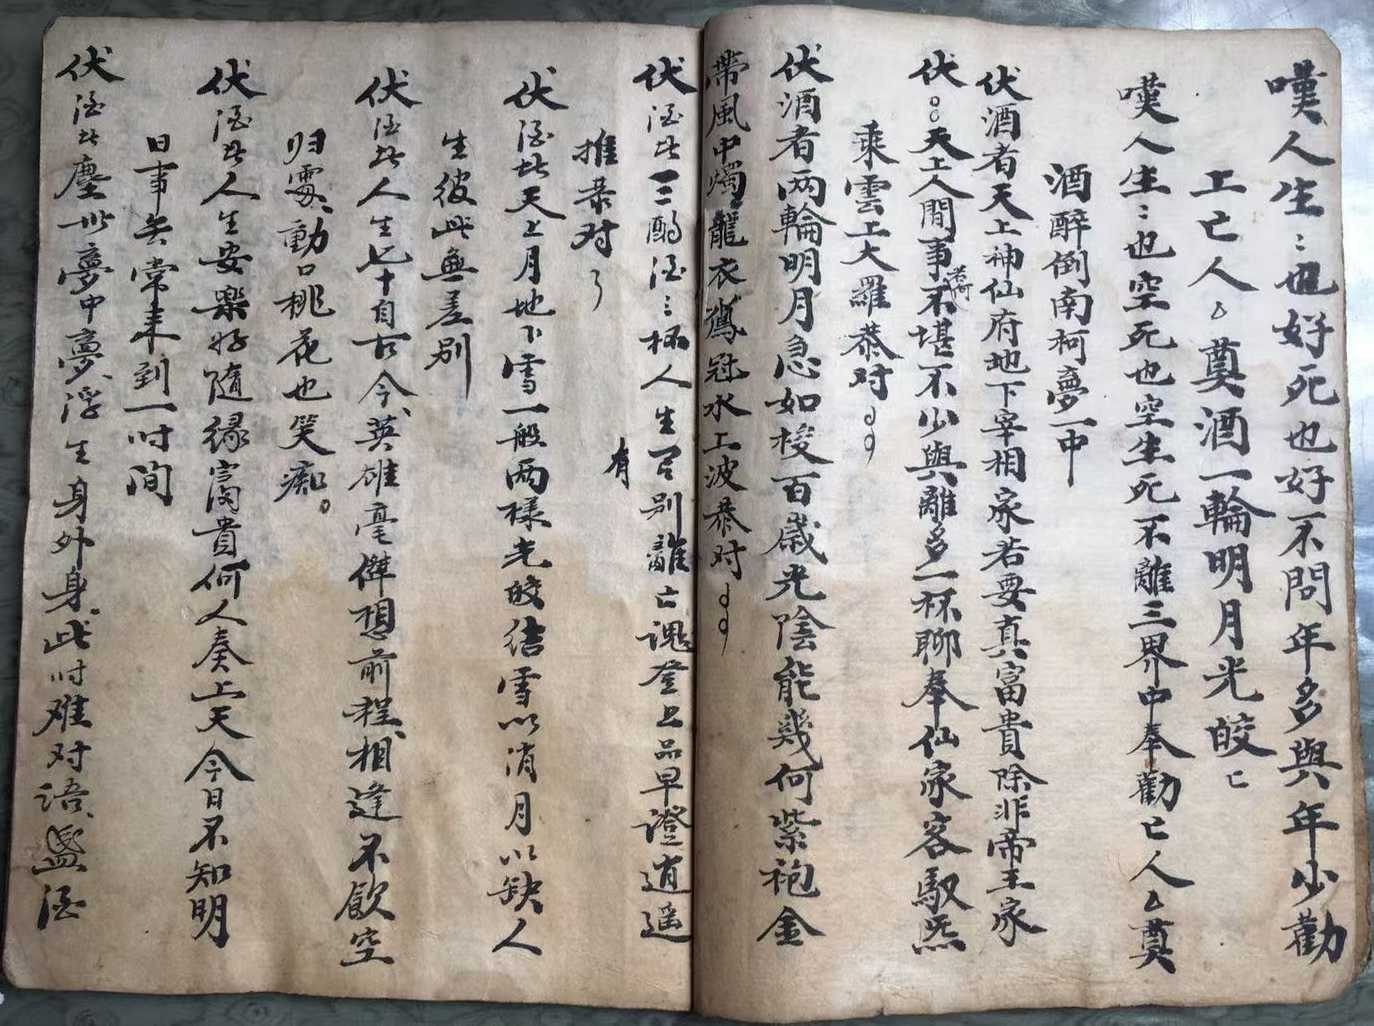 嘆人生〻也好死也好不問年多與年少勸
工亡人〻奠酒一輪明月光皎亡
嘆人生〻也空死也空生死不離三界中奉勸亡人〻奠
酒醉倒南柯夢一中
伏酒者天上神仙府地下宰相家若要真富貴除非帝王家
伏〻天上人間事不堪不少與離多一杯聊奉仙家客馭炁
乘雲上大羅恭对
伏酒者两輪明月急如梭百歲光陰能幾何紫袍金
帶風中燭龍衣鳳冠水上波恭对
伏酒此三酌酒〻杯人生有别離亡魂登上品早證逍遥
推恭对
伏酒此天上月地下雪一般两樣光皎结雪以消月以缺人
生彼此無差别
伏酒此人生七十自古今英雄毫傑想前程相逢不飲空
归處動口桃花也笑痴
伏酒此人生安樂好隨緣富貴何人奏上天今日不知明
日事無常来到一时间
伏酒此塵世夢中夢浮生身外身此时难对语盞酒